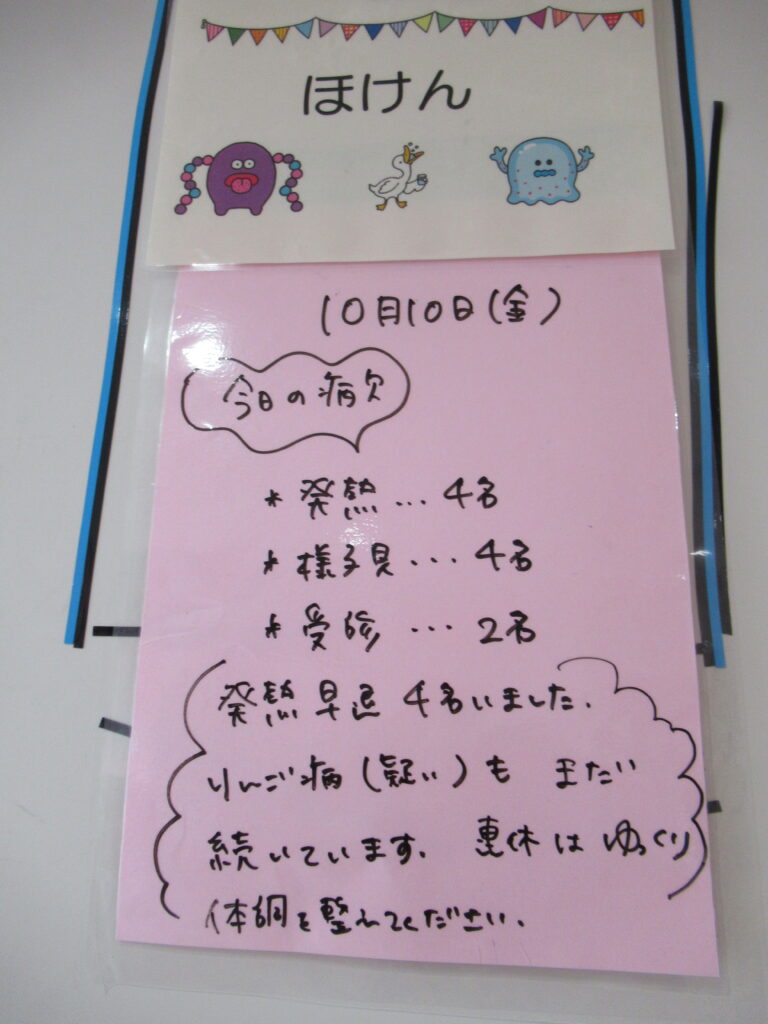 ほけん
10月10日(金)
今日の病欠
* 発熱...4名
* 様子見...4名
* 受診...2名
発熱早退 4名いました.
りんご病(疑い)も まだ
続いています. 連休はゆっくり
体調を整えてください.